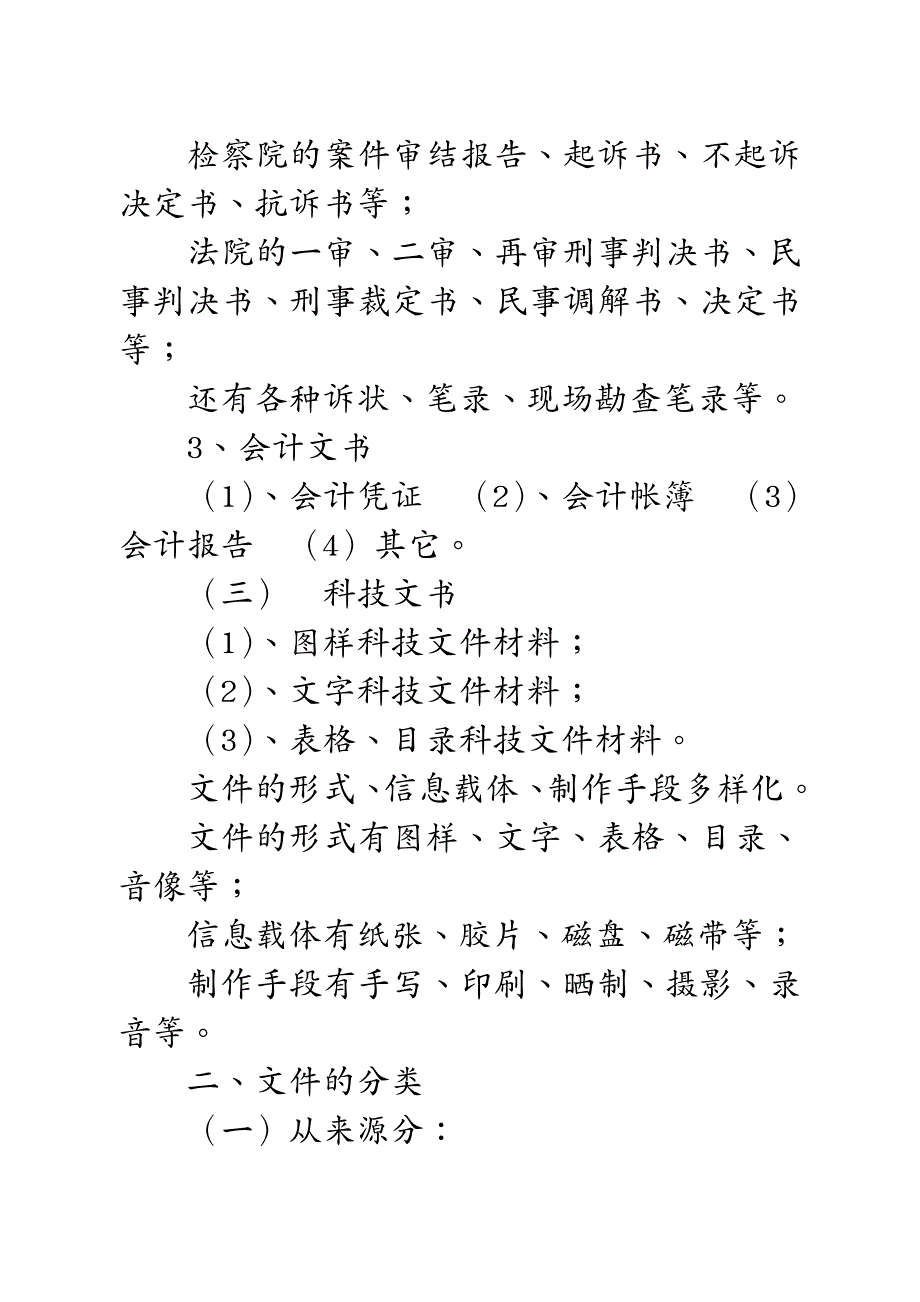 检察院的案件审结报告、起诉书、不起诉
决定书、抗诉书等；
法院的一审、二审、再审刑事判决书、民
事判决书、刑事裁定书、民事调解书、决定书
等；
还有各种诉状、笔录、现场勘查笔录等。
3、会计文书
（1）、会计凭证　（2）、会计帐簿　（3）
会计报告　（4）其它。
（三）　科技文书
（1）、图样科技文件材料；
（2）、文字科技文件材料；
（3）、表格、目录科技文件材料。
文件的形式、信息载体、制作手段多样化。
文件的形式有图样、文字、表格、目录、
音像等；
信息载体有纸张、胶片、磁盘、磁带等；
制作手段有手写、印刷、晒制、摄影、录
音等。
二、文件的分类
（一）从来源分：